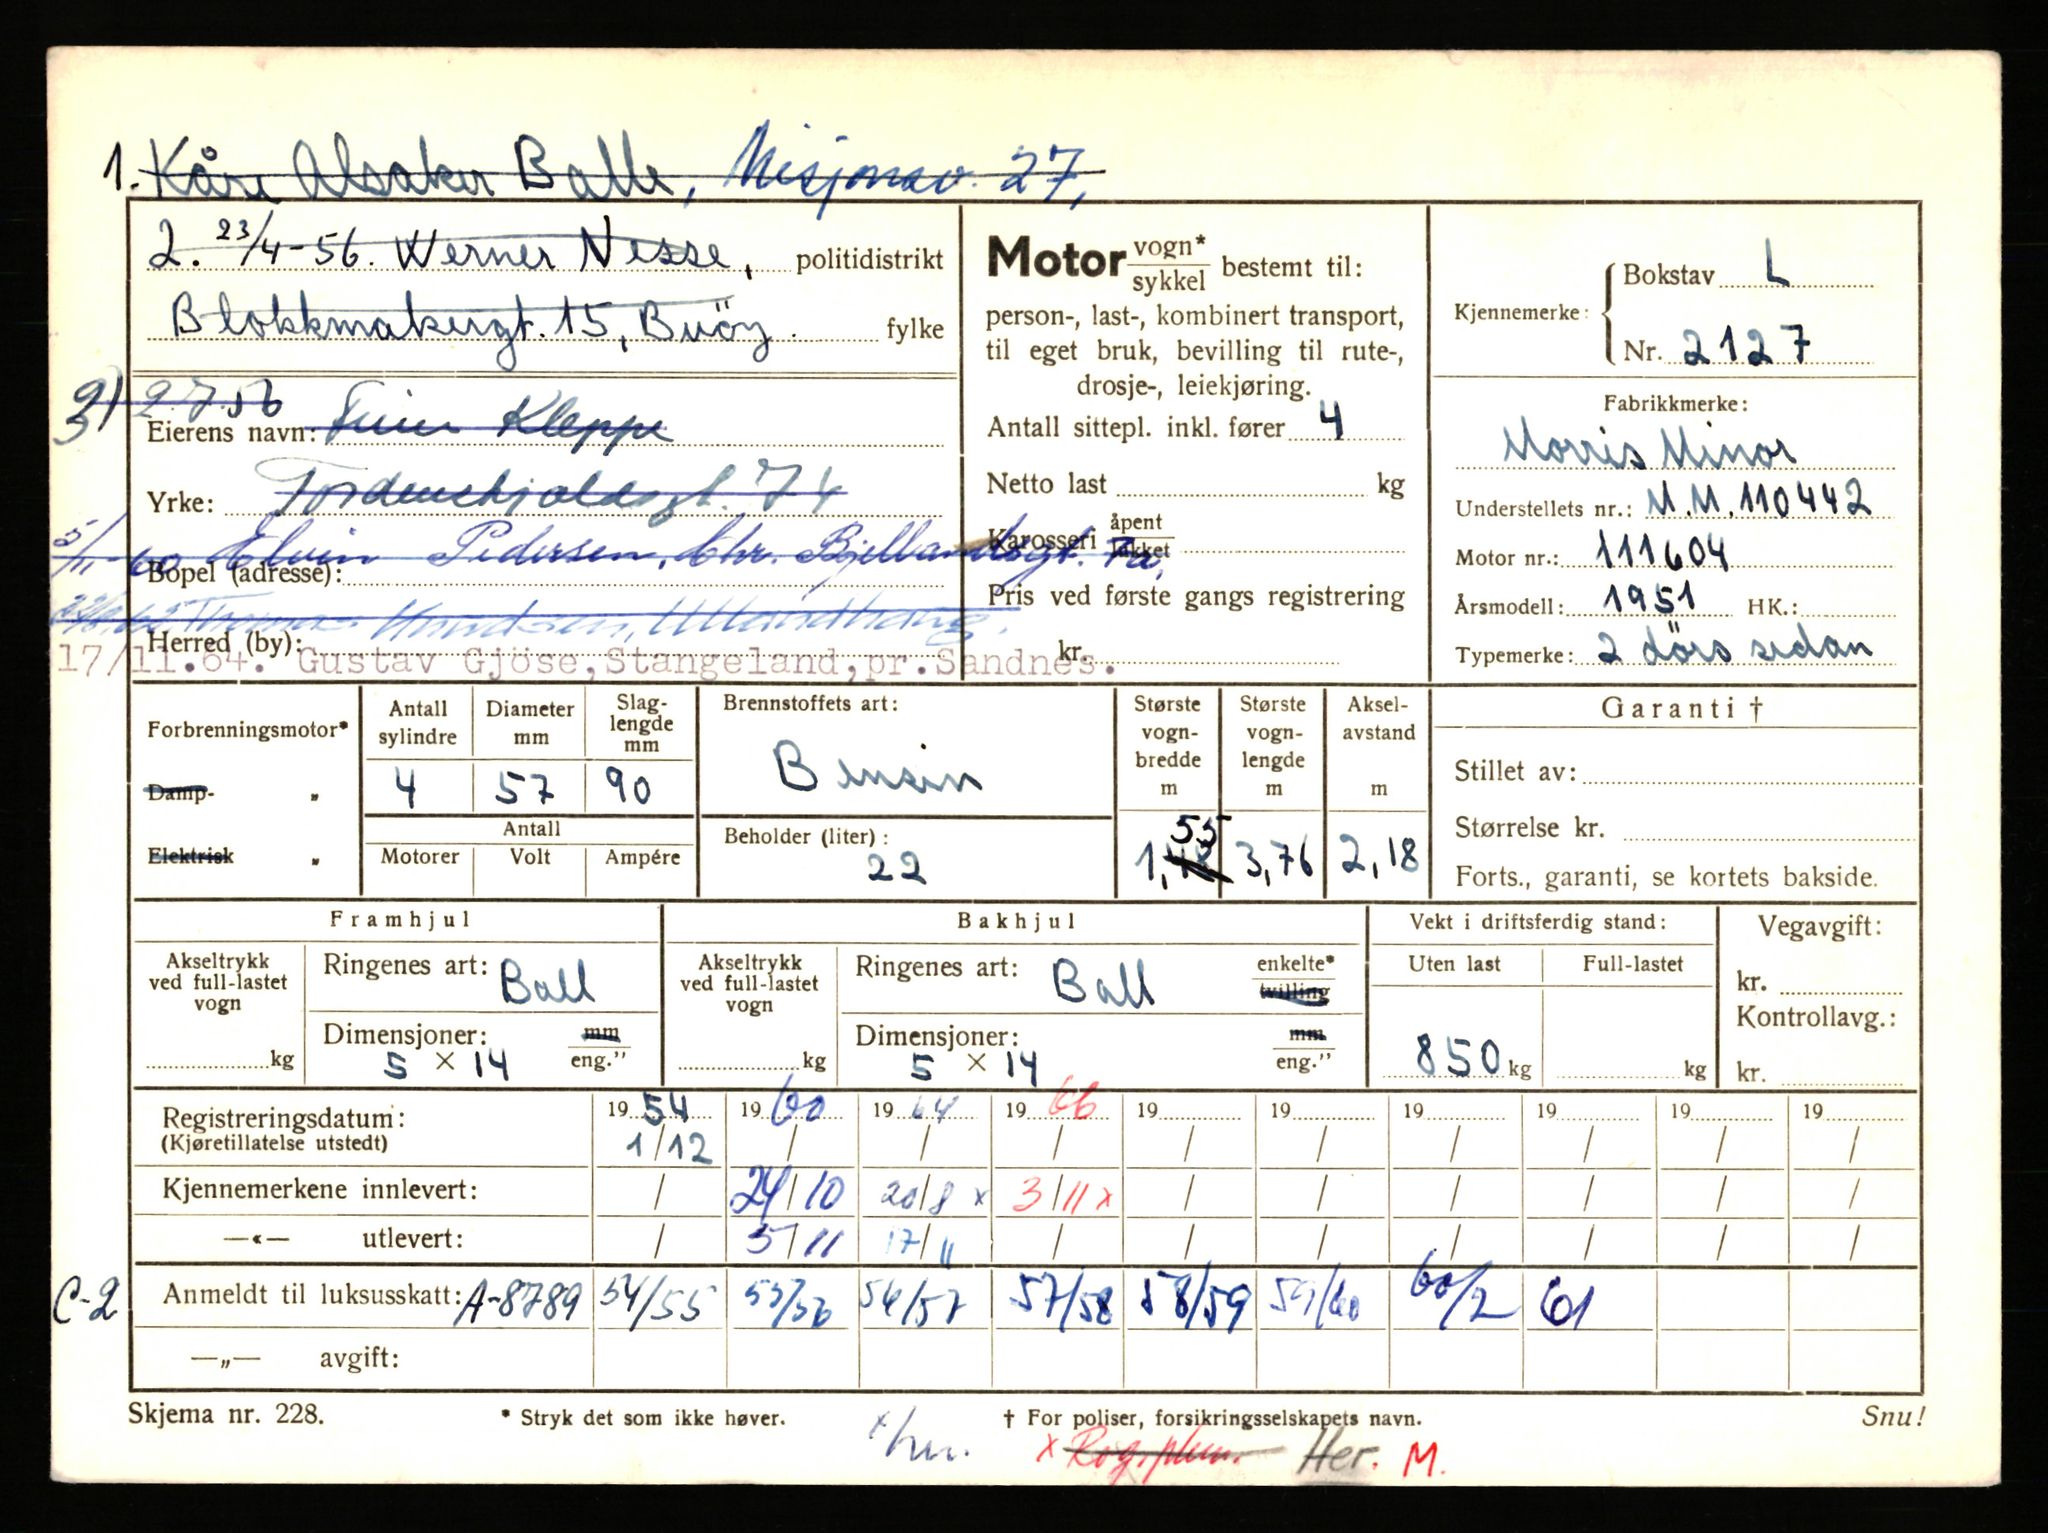 1. Kåre Alsaker Balle, Misjonsv. 27,
2. 23/4-56. Werner Nesse, politidistrikt
Blokkmakergt. 15, Buöy. fylke
3) 2.7.56
Eierens navn: Kleppe
Yrke: Tordenskjoldsgt. 74
5/11-60 Elvin Pedersen, Chr. Bjellandsgt. 7a,
Bopel (adresse):
Thomas Knudsen, Ullandhaug.
Herred (by):
17/11.64. Gustav Gjöse, Stangeland, pr. Sandnes.
Motor vogn* sykkel bestemt til:
person-, last-, kombinert transport,
til eget bruk, bevilling til rute-,
drosje-, leiekjøring.
Antall sittepl. inkl. fører 4
Netto last kg
Karosseri åpent lukket
Pris ved første gangs registrering
kr.
Kjennemerke: Bokstav L
Nr. 2127
Fabrikkmerke:
Morris Minor
Understellets nr.: M.M.110442
Motor nr.: 111604
Årsmodell: 1951 HK.:
Typemerke: 2 dörs sedan
Forbrenningsmotor*
Damp- „
Elektrisk „
Antall sylindre 4
Diameter mm 57
Slaglengde mm 90
Antall
Motorer Volt Ampére
Brennstoffets art:
Bensin
Beholder (liter):
22
Største vognbredde m 1,55
Største vognlengde m 3,76
Akselavstand m 2,18
Garanti †
Stillet av:
Størrelse kr.
Forts., garanti, se kortets bakside.
Framhjul
Akseltrykk ved full-lastet vogn kg
Ringenes art: Ball
Dimensjoner: mm
5 × 14 eng."
Bakhjul
Akseltrykk ved full-lastet vogn kg
Ringenes art: Ball enkelte* tvilling
Dimensjoner: mm
5 × 14 eng."
Vekt i driftsferdig stand:
Uten last Full-lastet
850 kg kg
Vegavgift:
kr.
Kontrollavg.:
kr.
Registreringsdatum: 19 54 19 60 19 64 19 66 19 19 19 19 19 19
(Kjøretillatelse utstedt) 1/12 / / / / / / / / /
Kjennemerkene innlevert: / 24/10 20/8 x 3/11 x / / / / / /
—«— utlevert: / 5/11 17/11 / / / / / / /
C-2 Anmeldt til luksusskatt: A-8789 54/55 55/56 56/57 57/58 58/59 59/60 60/2 61
—„— avgift:
Skjema nr. 228. * Stryk det som ikke høver. † For poliser, forsikringsselskapets navn. Snu!
x her. x Rog. phus. Her. M.